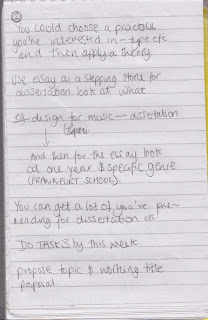 ②
You could choose a practice
you're interested in - type etc
and then apply a theory.
Use essay as a stepping stone for
dissertation look at what
eg design for music - dissetation
And then for the essay look
at one year & specific genre
(FRANKFURT SCHOOL).
You can get a lot of you're pre-
reading for dissertation etc
DO TASK 3 by this week
propose topic & working title